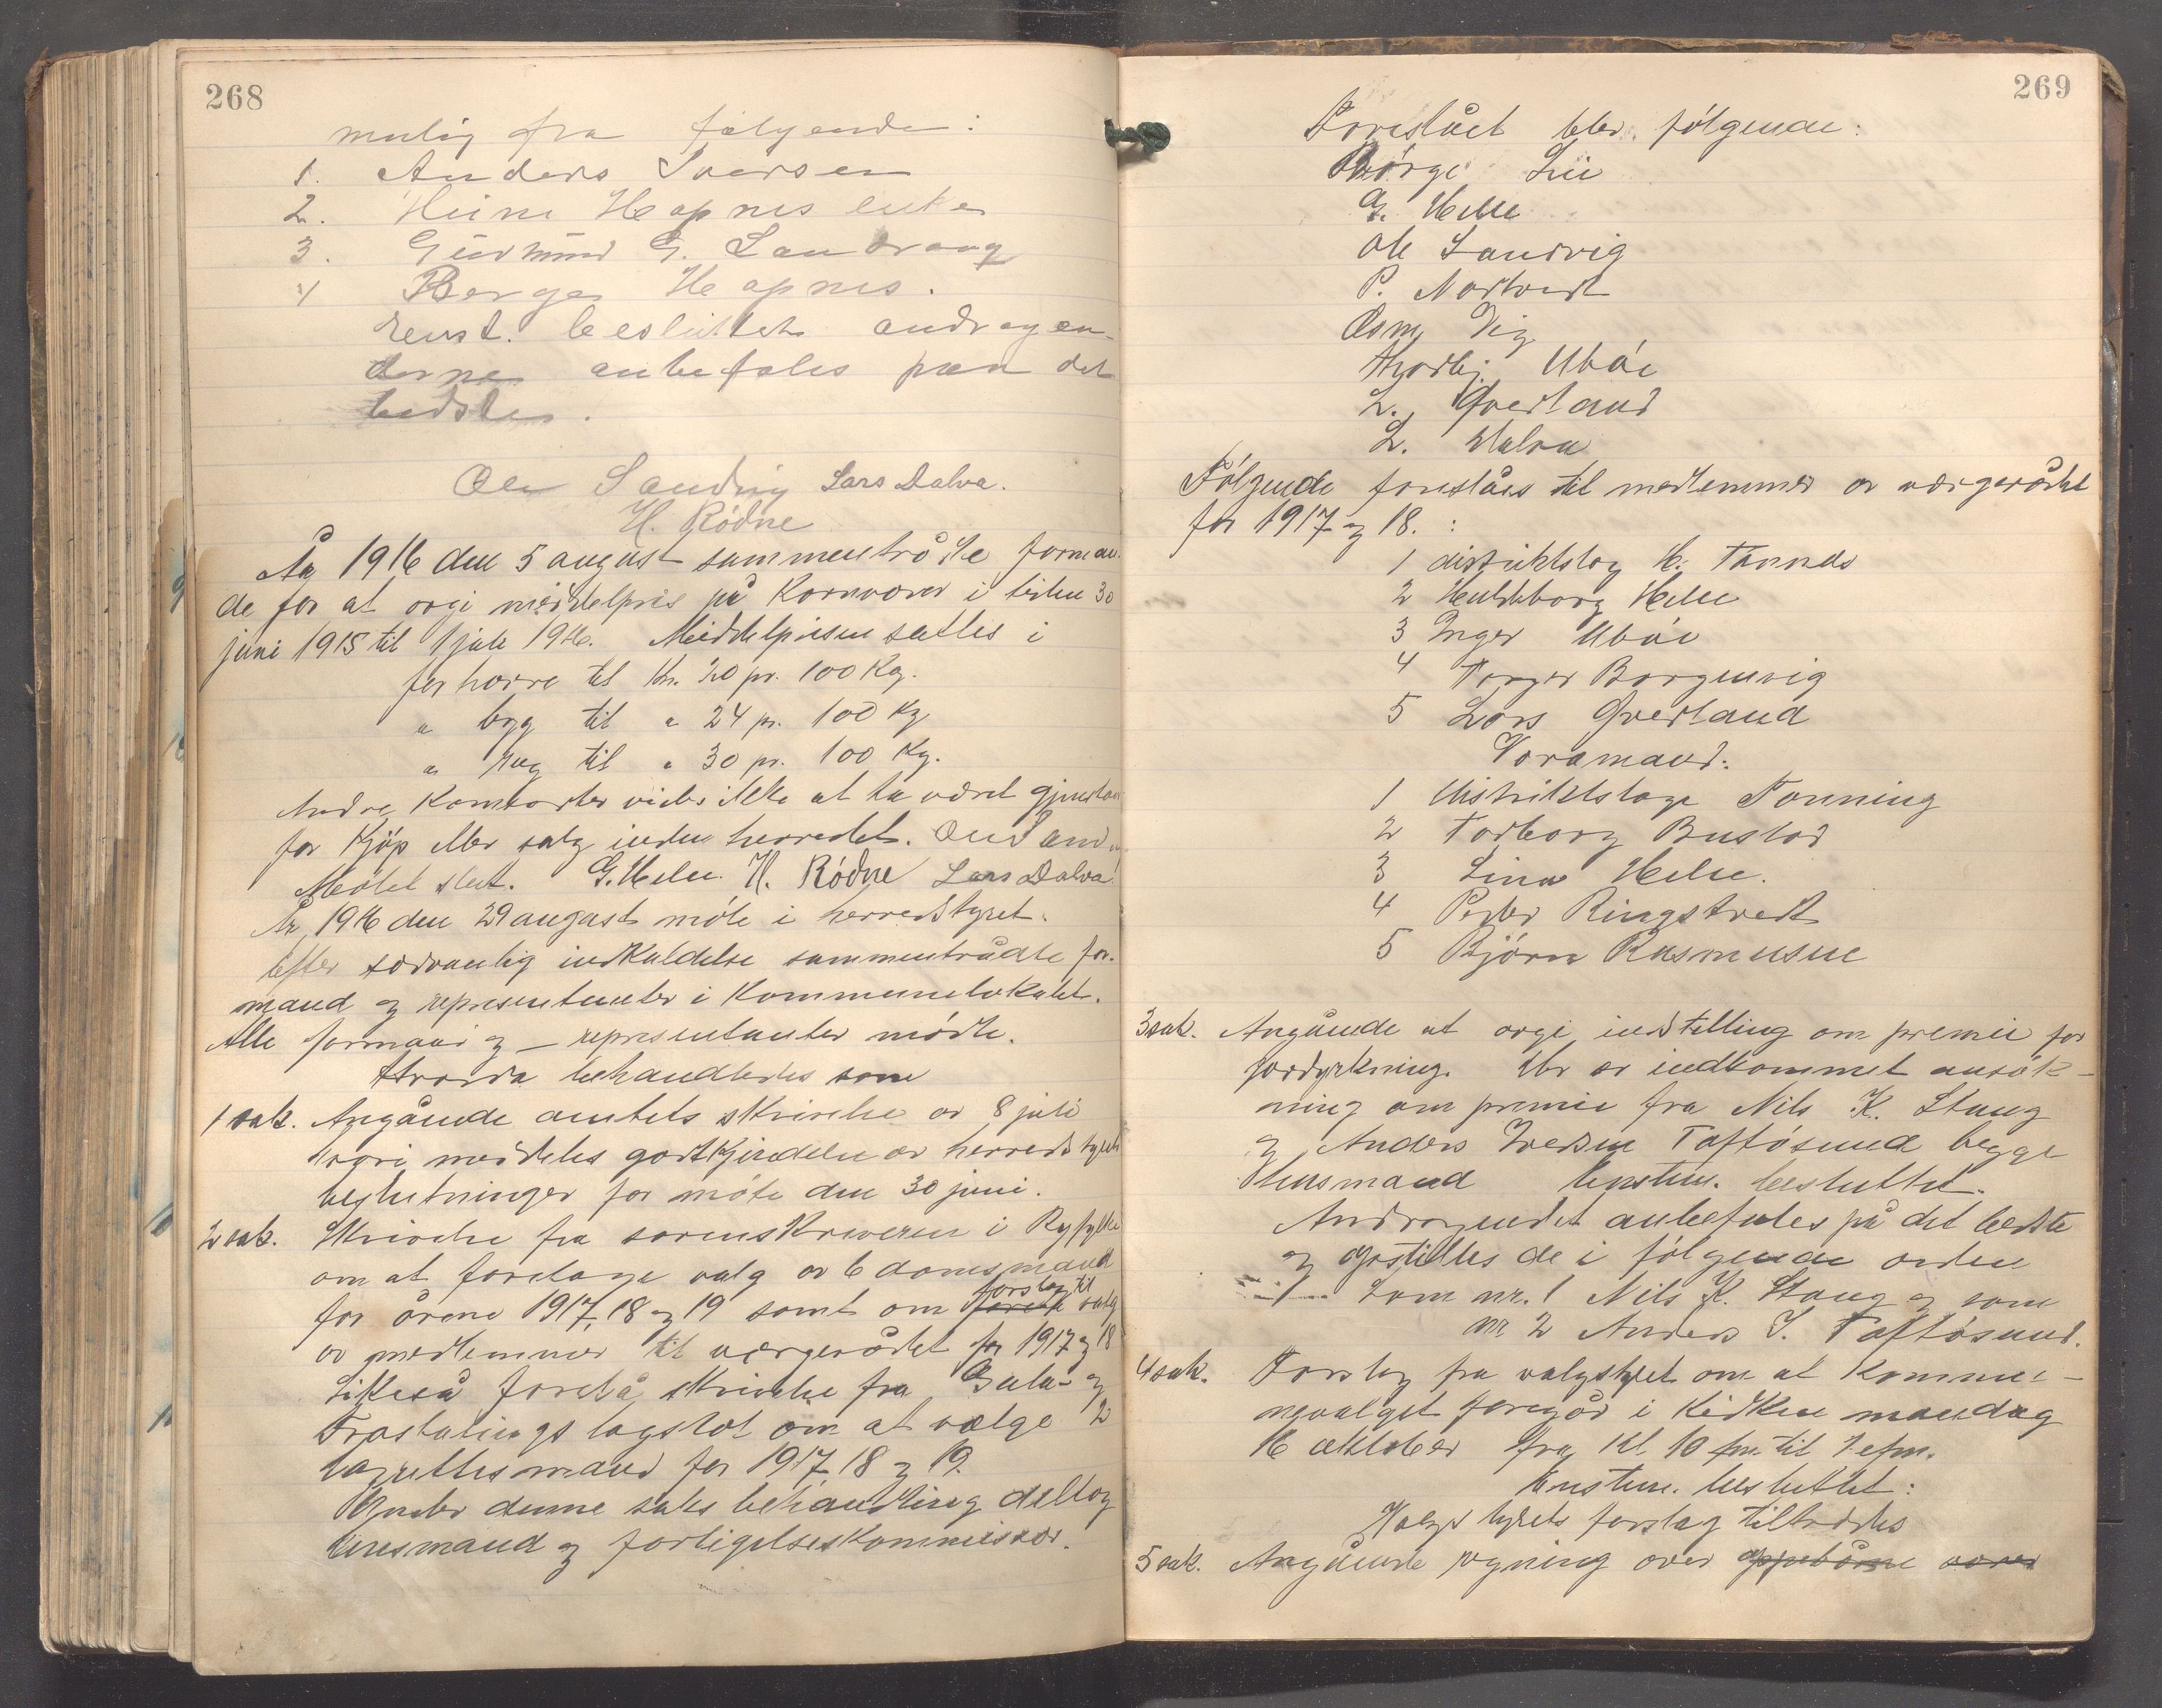 268
mulig fra følgende:
1. Anders Iversen
2. Heine Hapnes enke
3. Gudmund G. Sandvang
4 Børge Hapnes.
Enst. besluttet andragen-
derne anbefales paa det
bedste.
Ole Sandvig Lars Dalva.
H. Rödne
År 1916 den 5 august sammentrådte forman
de for at avgi middelpris på Kornvarer i tiden 30
juni 1915 til 1 juli 1916. Middelprisen sattes i
for havre til Kr. 20 pr. 100 Kg.
" byg til " 24 pr. 100 Kg
" rug til " 30 pr. 100 Kg.
Andre Kornsorter vides ikke at ha været gjenstan
for Kjöp eller salg inden herredet. Ole Sandv
Mötet slut. G. Helle. H. Rödne Lars Dalva.
År 1916 den 29 august möte i herredstyret.
Efter sedvanlig indkaldelse sammentrådte for-
mænd og representanter i Kommunelokalet.
Alle formænd og – representanter mödte.
Hvorda behandledes som
1 sak. Angående amtets skrivelse av 8 juli
hvori meddeles godtkjendelse av herredstyrets
beslutninger for möte den 30 juni.
2 sak. Skrivelse fra sorenskriveren i Ryfylke
om at foretage valg av 6 domsmænd
for årene 1917, 18 og 19 samt om forslag til valg
av medlemmer til vergerådet for 1917 og 18
Likeså forelå skrivelse fra Gula- og
Frostatings lagstol om at vælge 2
lagrettesmænd for 1917, 18 og 19.
Under denne saks behandling deltog
lensmand og forligelseskommissær.
269
Foreslået blev följgende:
Börge Lie
G. Helle
Ole Sandvig
P. Nortvedt
Osm. Vig
Thorbj. Uböe
L. Qverland
L. Dalva
Fölgende foreslåes til medlemmer av vergerådet
for 1917 og 18. :
1 distriktslæg H. Tønnes
2 Huldeborg Helle
3 Inger Uböe
4 Torger Borgenvig
5 Lars Qverland
Varamænd:
1 Distriktslæge Tonning
2 Torborg Bustad
3 Lina Helle.
4 Peder Ringstvedt
5 Björn Rasmusen
3 sak. Angående at avgi indstilling om premie for
jorddyrkning. Der er indkommet ansök-
ning om premie fra Nils K. Stang
og Anders Iversen Toftösund begge
husmænd Enstem. besluttet.
Andragendet anbefales på det bedste
og opstilles de i fölgende orden
Som nr. 1 Nils K. Stang og som
nr 2 Anders I. Toftösund.
4 sak. Forslag fra valgstyret om at Kommu-
nevalget foregår i Kirken mandag
16 oktober fra Kl. 10 fm. til 7 efm.
Enstem. besluttet:
Valgstyrets forslag tiltrædes
5 sak. Angående regning over oppebårne varer